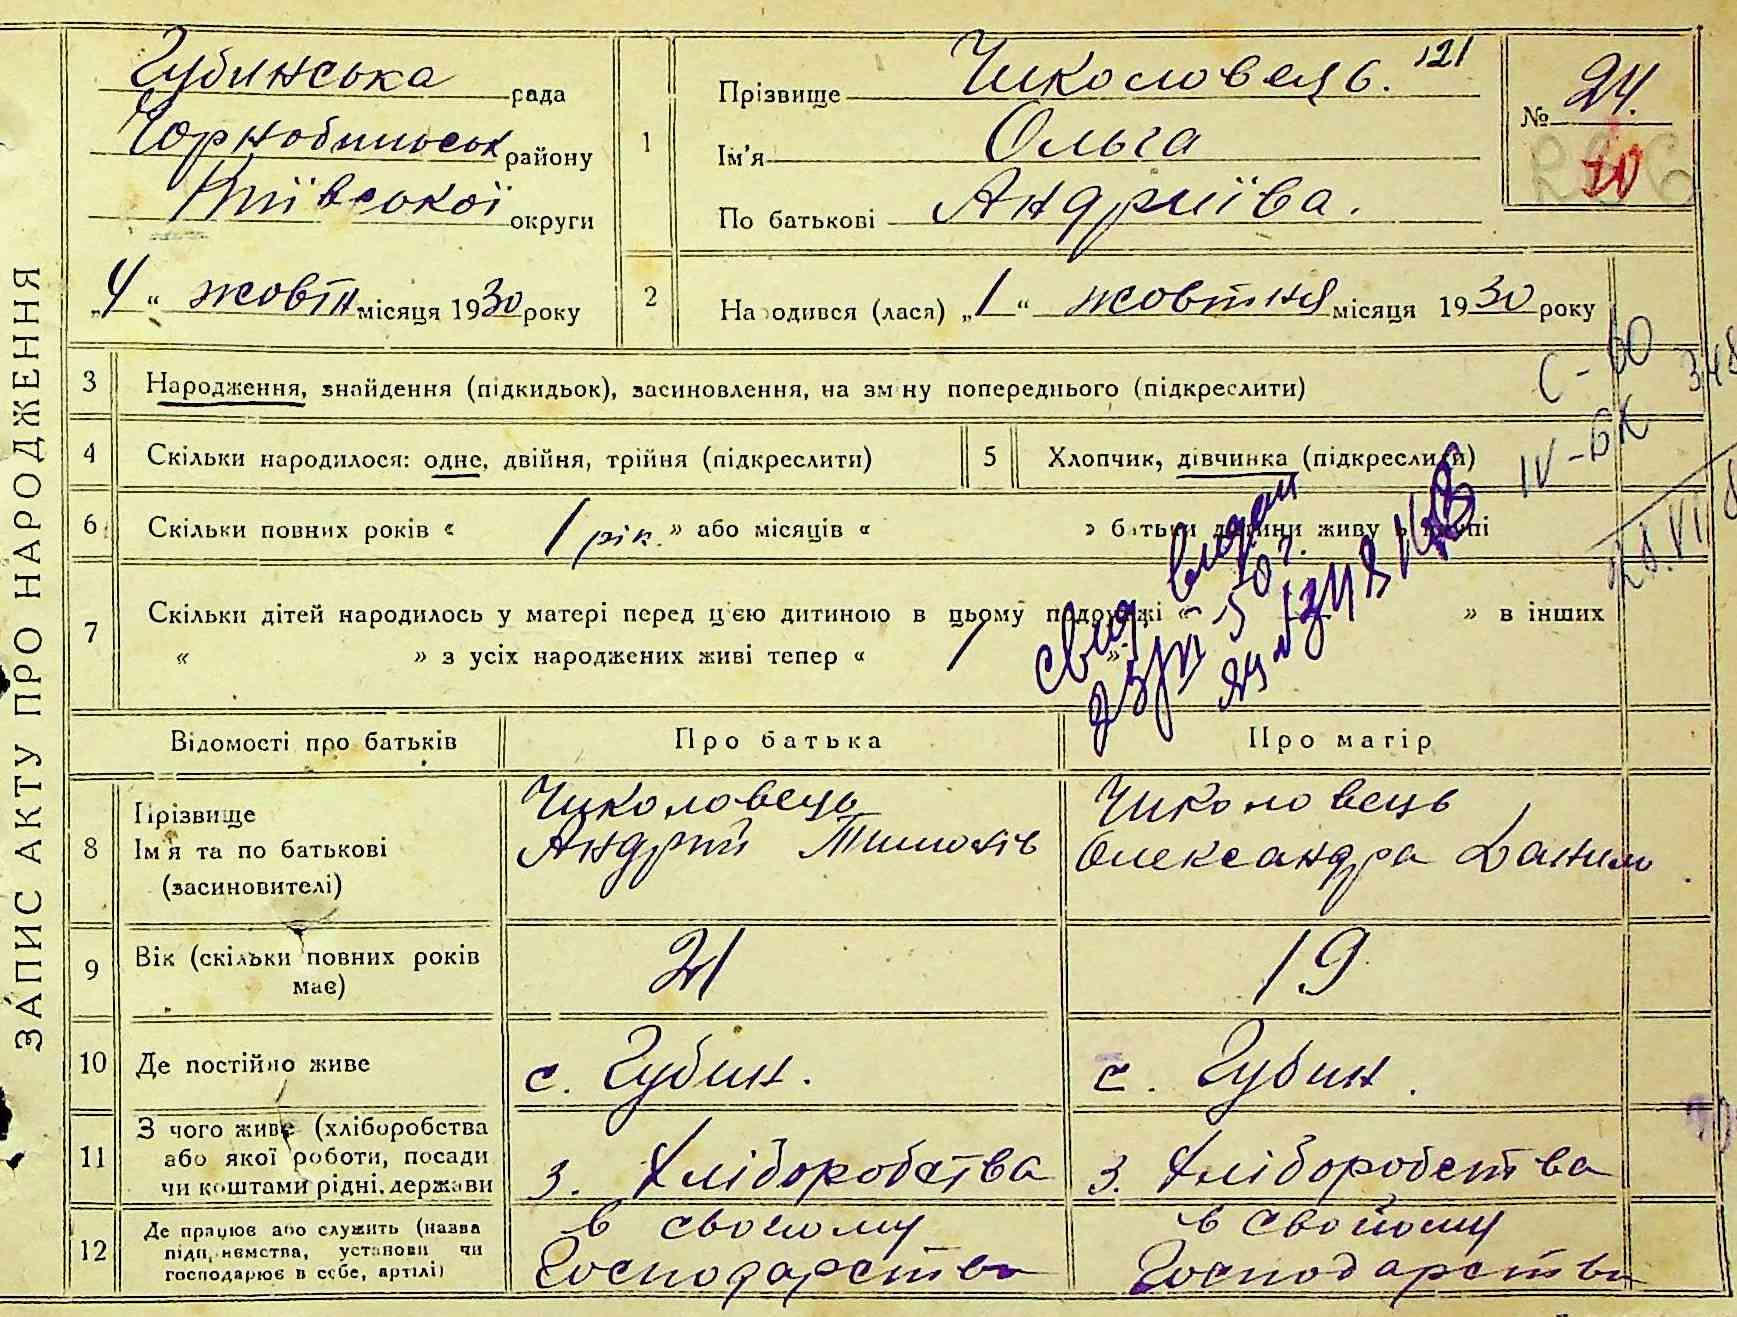 ЗАПИС АКТУ ПРО НАРОДЖЕННЯ
Губинська рада
Чорнобильськ району
Київської округи
„4“ жовтн місяця 1930 року
1
Прізвище Чиколовець. 121
Ім'я Ольга
По батькові Андриїва.
№ 24.
10
2
Народився (лася) „1“ жовтня місяця 1930 року
3 Народження, знайдення (підкидьок), засиновлення, на зміну попереднього (підкреслити)
С-ЮО
348
4 Скільки народилося: одне, двійня, трійня (підкреслити)
5 Хлопчик, дівчинка (підкреслити)
IV-БК
6 Скільки повних років « 1 рік. » або місяців « » батьки дитини живу в купі
7 Скільки дітей народилось у матері перед цією дитиною в цьому подружжі « » в інших
« » з усіх народжених живі тепер « 1 ».
свид видан
Відомості про батьків
Про батька
Про матір
8 Прізвище
Ім'я та по батькові
(засиновителі)
Чиколовець
Андрий Тимохів
Чиколовець
Олександра Данило
9 Вік (скільки повних років
має)
21
19
10 Де постійно живе
с. Губин.
с. Губин.
11 З чого живе (хліборобства
або якої роботи, посади
чи коштами рідні, держави
з. Хліборобства
з. Хліборобства
12 Де працює або служить (назва
підприємства, установи чи
господарює в себе, артілі)
в своюму
Господарстві
в свойому
Господарстві